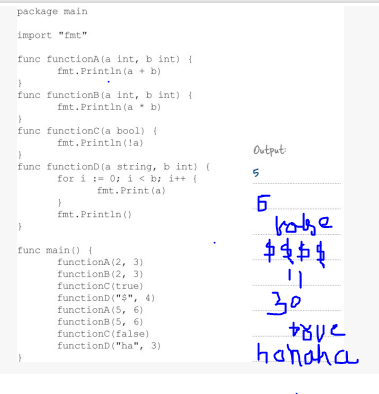 package main
import "fmt"
func functionA(a int, b int) {
fmt.Println(a + b)
}
func functionB(a int, b int) {
fmt.Println(a * b)
}
func functionC(a bool) {
fmt.Println(!a)
}
func functionD(a string, b int) {
for i := 0; i < b; i++ {
fmt.Print(a)
}
fmt.Println()
}
func main() {
functionA(2, 3)
functionB(2, 3)
functionC(true)
functionD("$", 4)
functionA(5, 6)
functionB(5, 6)
functionC(false)
functionD("ha", 3)
}
Output:
5
6
false
$$$$
11
30
true
hahaha